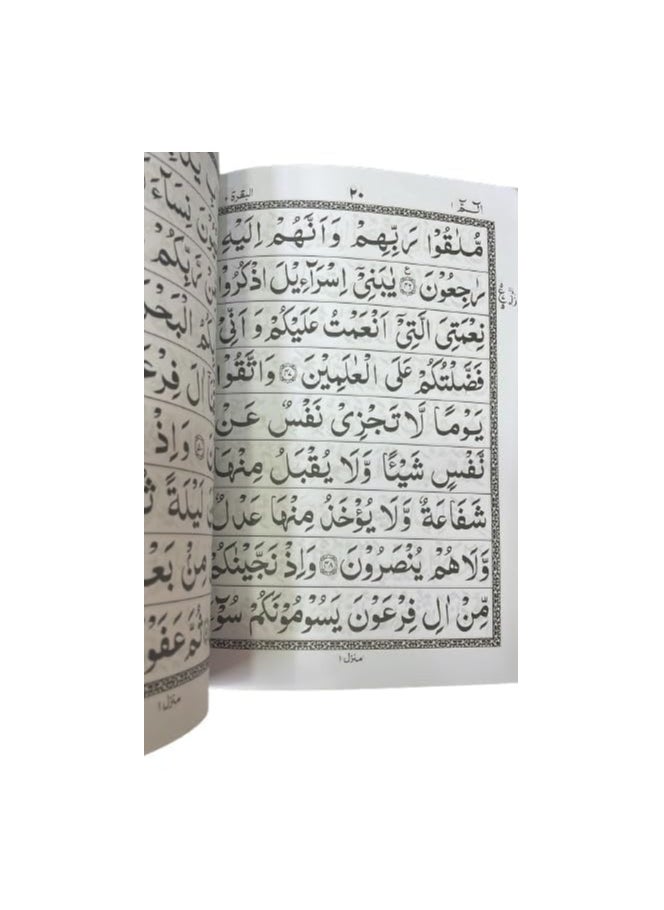 الٓمّٓ ١ ٢٠ البقرة
مُّلٰقُوْا رَبِّهِمْ وَاَنَّهُمْ اِلَيْهِ
رٰجِعُوْنَ ۴۶ ع يٰبَنِيْٓ اِسْرَآءِيْلَ اذْكُرُوْا
نِعْمَتِيَ الَّتِيْٓ اَنْعَمْتُ عَلَيْكُمْ وَاَنِّيْ
فَضَّلْتُكُمْ عَلَى الْعٰلَمِيْنَ ۴۷ وَاتَّقُوْا
يَوْمًا لَّا تَجْزِيْ نَفْسٌ عَنْ
نَّفْسٍ شَيْـًٔا وَّلَا يُقْبَلُ مِنْهَا
شَفَاعَةٌ وَّلَا يُؤْخَذُ مِنْهَا عَدْلٌ
وَّلَا هُمْ يُنْصَرُوْنَ ۴۸ وَاِذْ نَجَّيْنٰكُمْ
مِّنْ اٰلِ فِرْعَوْنَ يَسُوْمُوْنَكُمْ سُوْٓءَ
منزل ١
نِسَآءَ
رَّبِّكُمْ
اٰلَ
وَاِذْ
لَيْلَةً
مِنْۢ
ثُمَّ
منزل ١